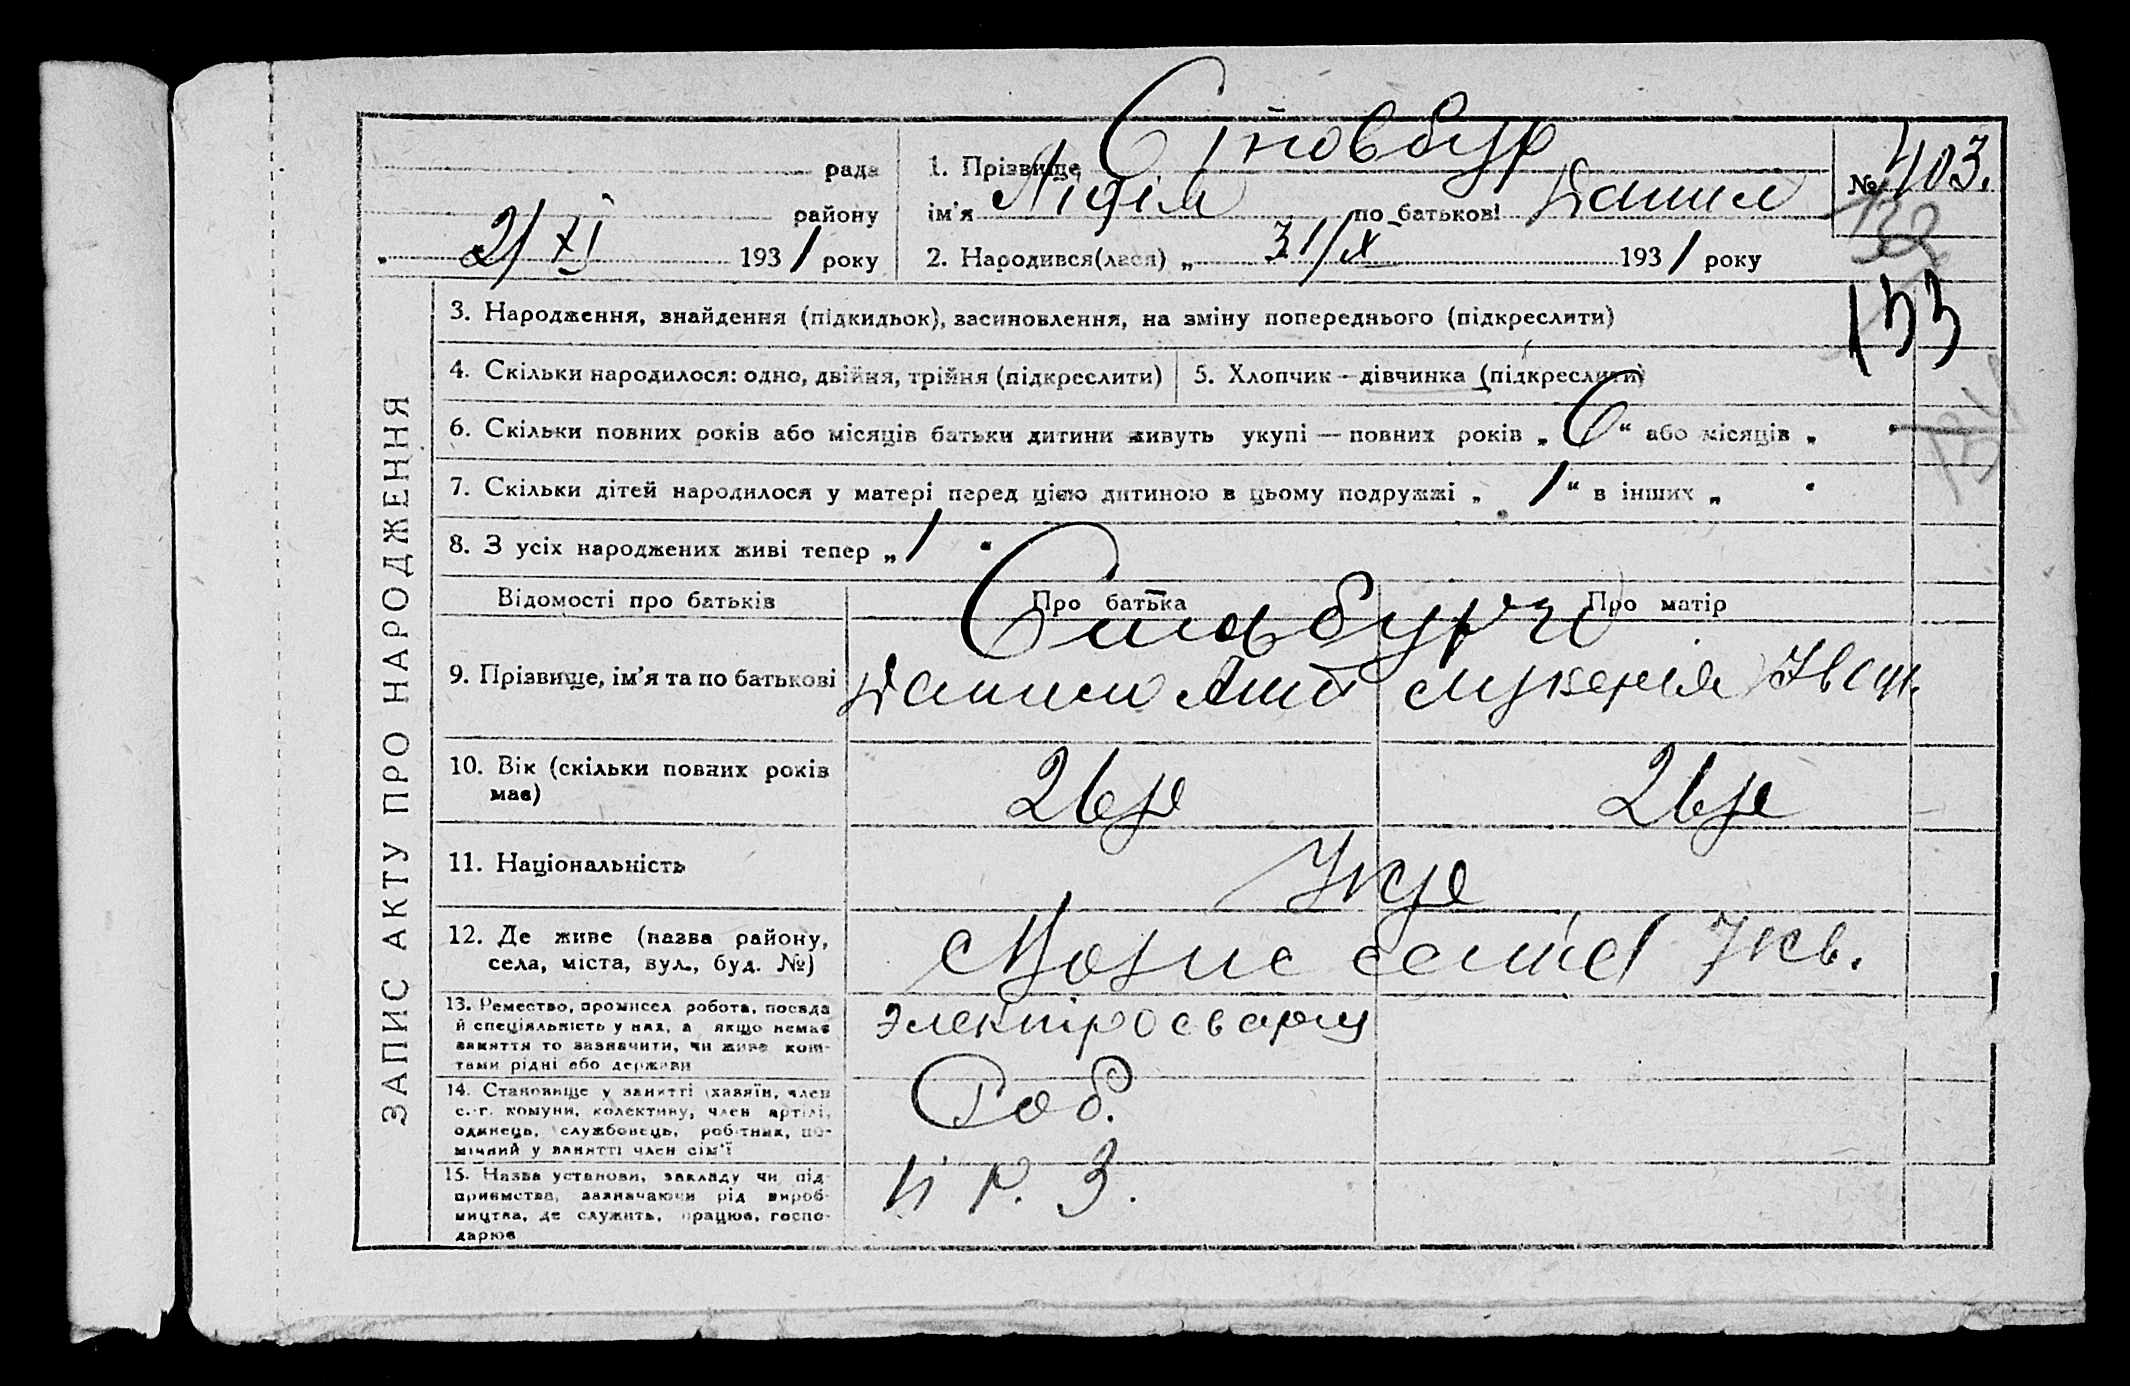 Стовбур
рада 1. Прізвище № 403.
району ім'я Лідія по батькові Данил
2/XI 1931 року 2. Народився(лася) „ 31/X 1931 року
133
3. Народження, знайдення (підкидьок), засиновлення, на зміну попереднього (підкреслити)
4. Скільки народилося: одно, двійня, трійня (підкреслити) 5. Хлопчик — дівчинка (підкреслити)
6. Скільки повних років або місяців батьки дитини живуть укупі — повних років „ 6 “ або місяців „
7. Скільки дітей народилося у матері перед цією дитиною в цьому подружжі „ 1 “ в інших „
8. З усіх народжених живі тепер „ 1 “
ЗАПИС АКТУ ПРО НАРОДЖЕННЯ
Відомості про батьків Про батька Про матір
9. Прізвище, ім'я та по батькові
10. Вік (скільки повних років 26р 26р
має)
11. Національність Укр
12. Де живе (назва району,
села, міста, вул., буд. №)
13. Ремество, промисел робота, посада электросварщ
й спеціяльність у них, а якщо немає
заняття то зазначити, чи живе кош-
тами рідні або держави
14. Становище у занятті (хазяїн, член Роб.
с.-г. комуни, колективу, член артілі,
одинець, службовець, робітник, по-
мічний у занятті член сім'ї
15. Назва установи, закладу чи під-
приємства, зазначаючи рід вироб-
ництва, де служить, працює, госпо-
дарює